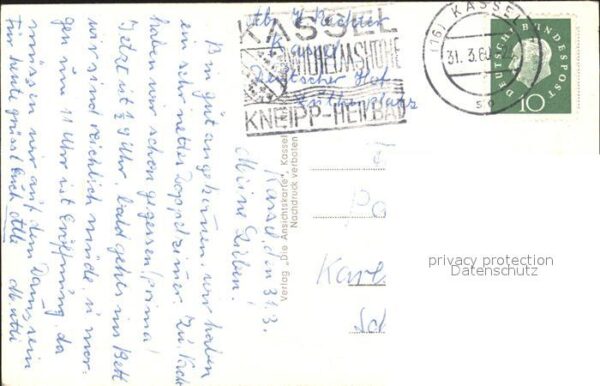 Abs. H. Richter
Kassel
Deutscher Hof
KASSEL
WILHELMSHÖHE
KNEIPP-HEILBAD
(16) KASSEL
31. 3. 60
DEUTSCHE BUNDESPOST
10
Kassel, den 31.3.
Meine Lieben!
Bin gut angekommen. wir haben
ein sehr nettes Doppelzimmer. Zu Nacht
haben wir schon gegessen! prima!
Jetzt ist ½9 Uhr. bald gehts ins Bett
wir sind reichlich müde u. mor-
gen um 11 Uhr ist Eröffnung, da
müssen wir auf dem Damm sein
Für heute grüsst Euch Alle
Mutti
Verlag „Die Ansichtskarte", Kassel
Nachdruck verboten
Po
Karl
privacy protection
Datenschutz